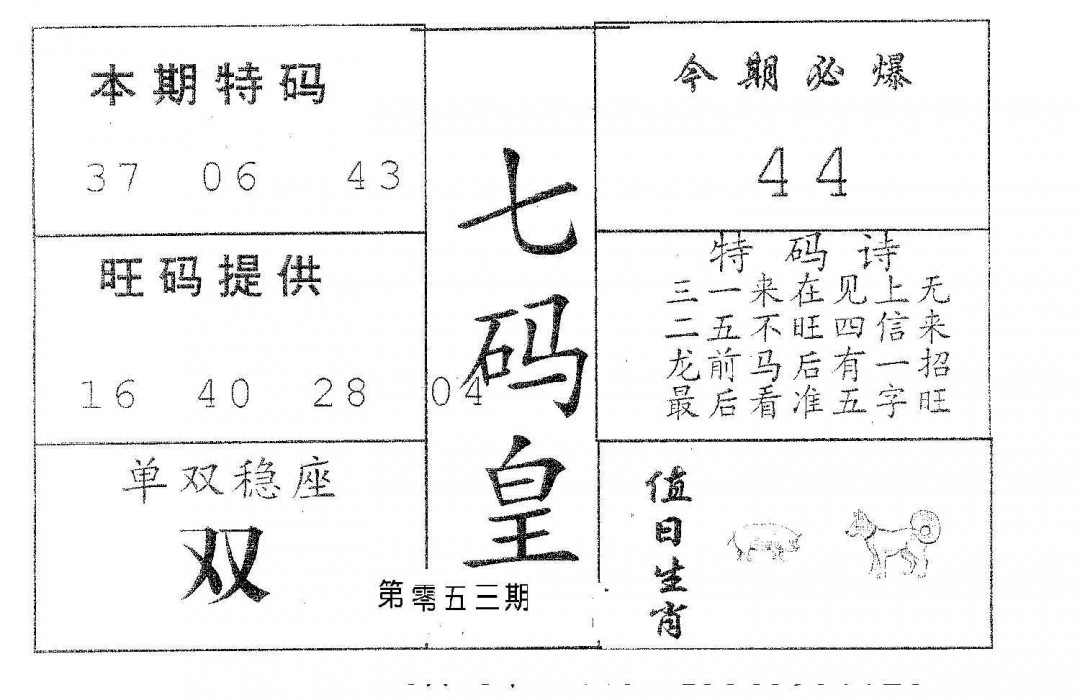 本期特码
37 06 43
旺码提供
16 40 28 04
单双稳座
双
七码皇
第零五三期
今期必爆
44
特码诗
三一来在见上无
二五不旺四信来
龙前马后有一招
最后看准五字旺
值日生肖